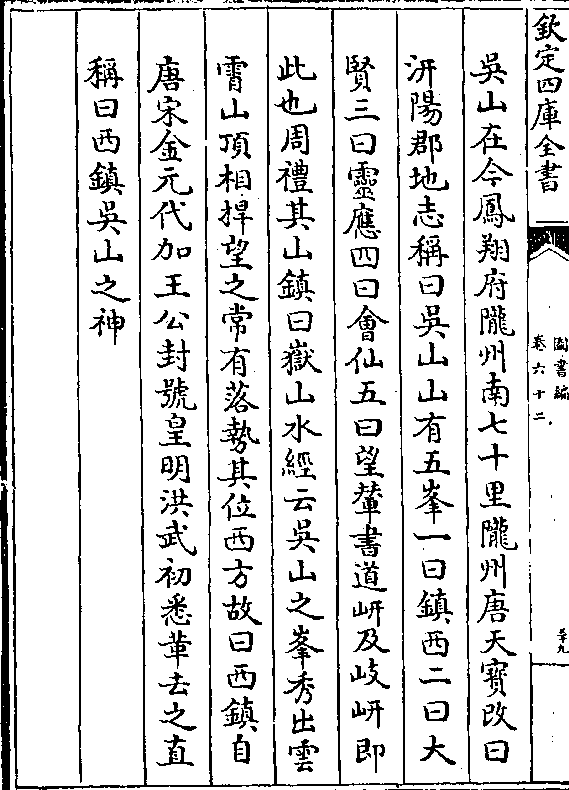 欽定四庫全書
圖書編
卷六十二
吳山在今鳳翔府隴州南七十里隴州唐天寶改曰
汧陽郡地志稱曰吳山山有五峯一曰鎮西二曰大
賢三曰靈應四曰會仙五曰望輦書道岍及岐岍即
此也周禮其山鎮曰嶽山水經云吳山之峯秀出雲
霄山頂相捍望之常有落勢其位西方故曰西鎮自
唐宋金元代加王公封號皇明洪武初悉革去之直
稱曰西鎮吳山之神